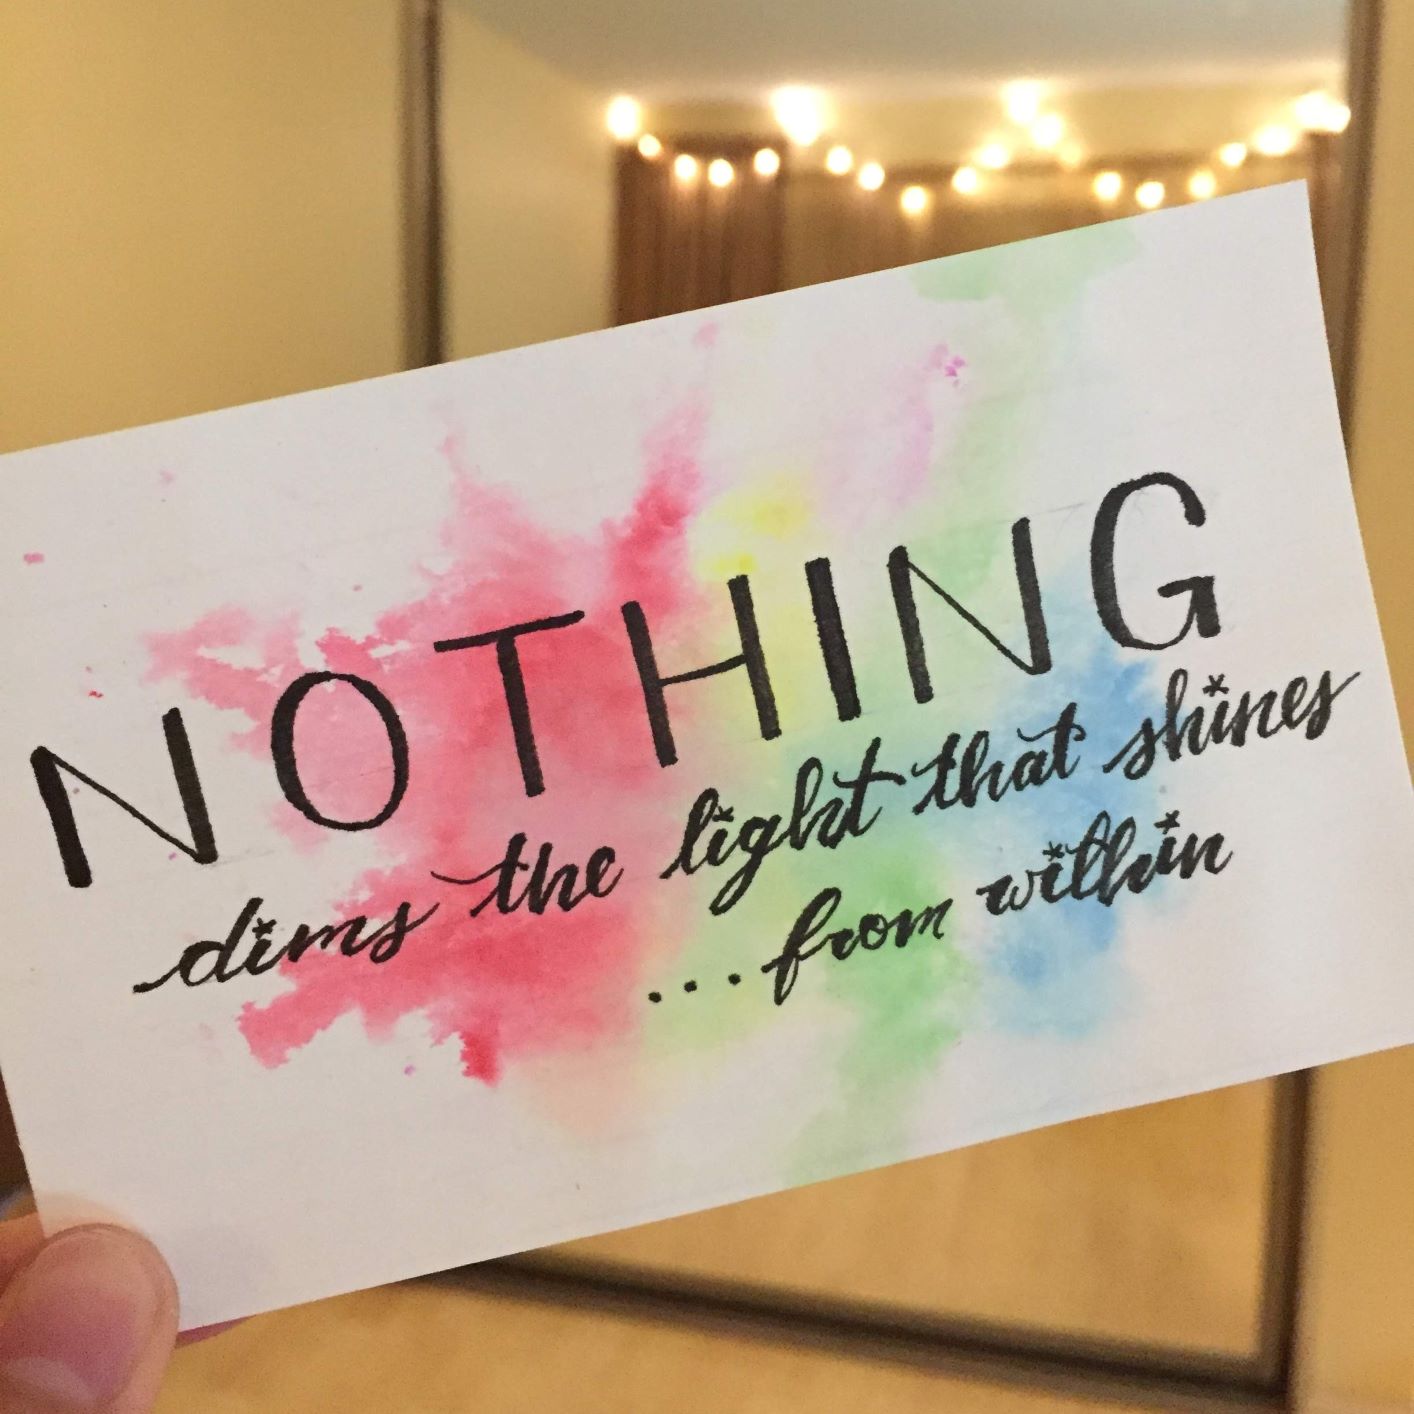 NOTHING
dims the light that shines
...from within